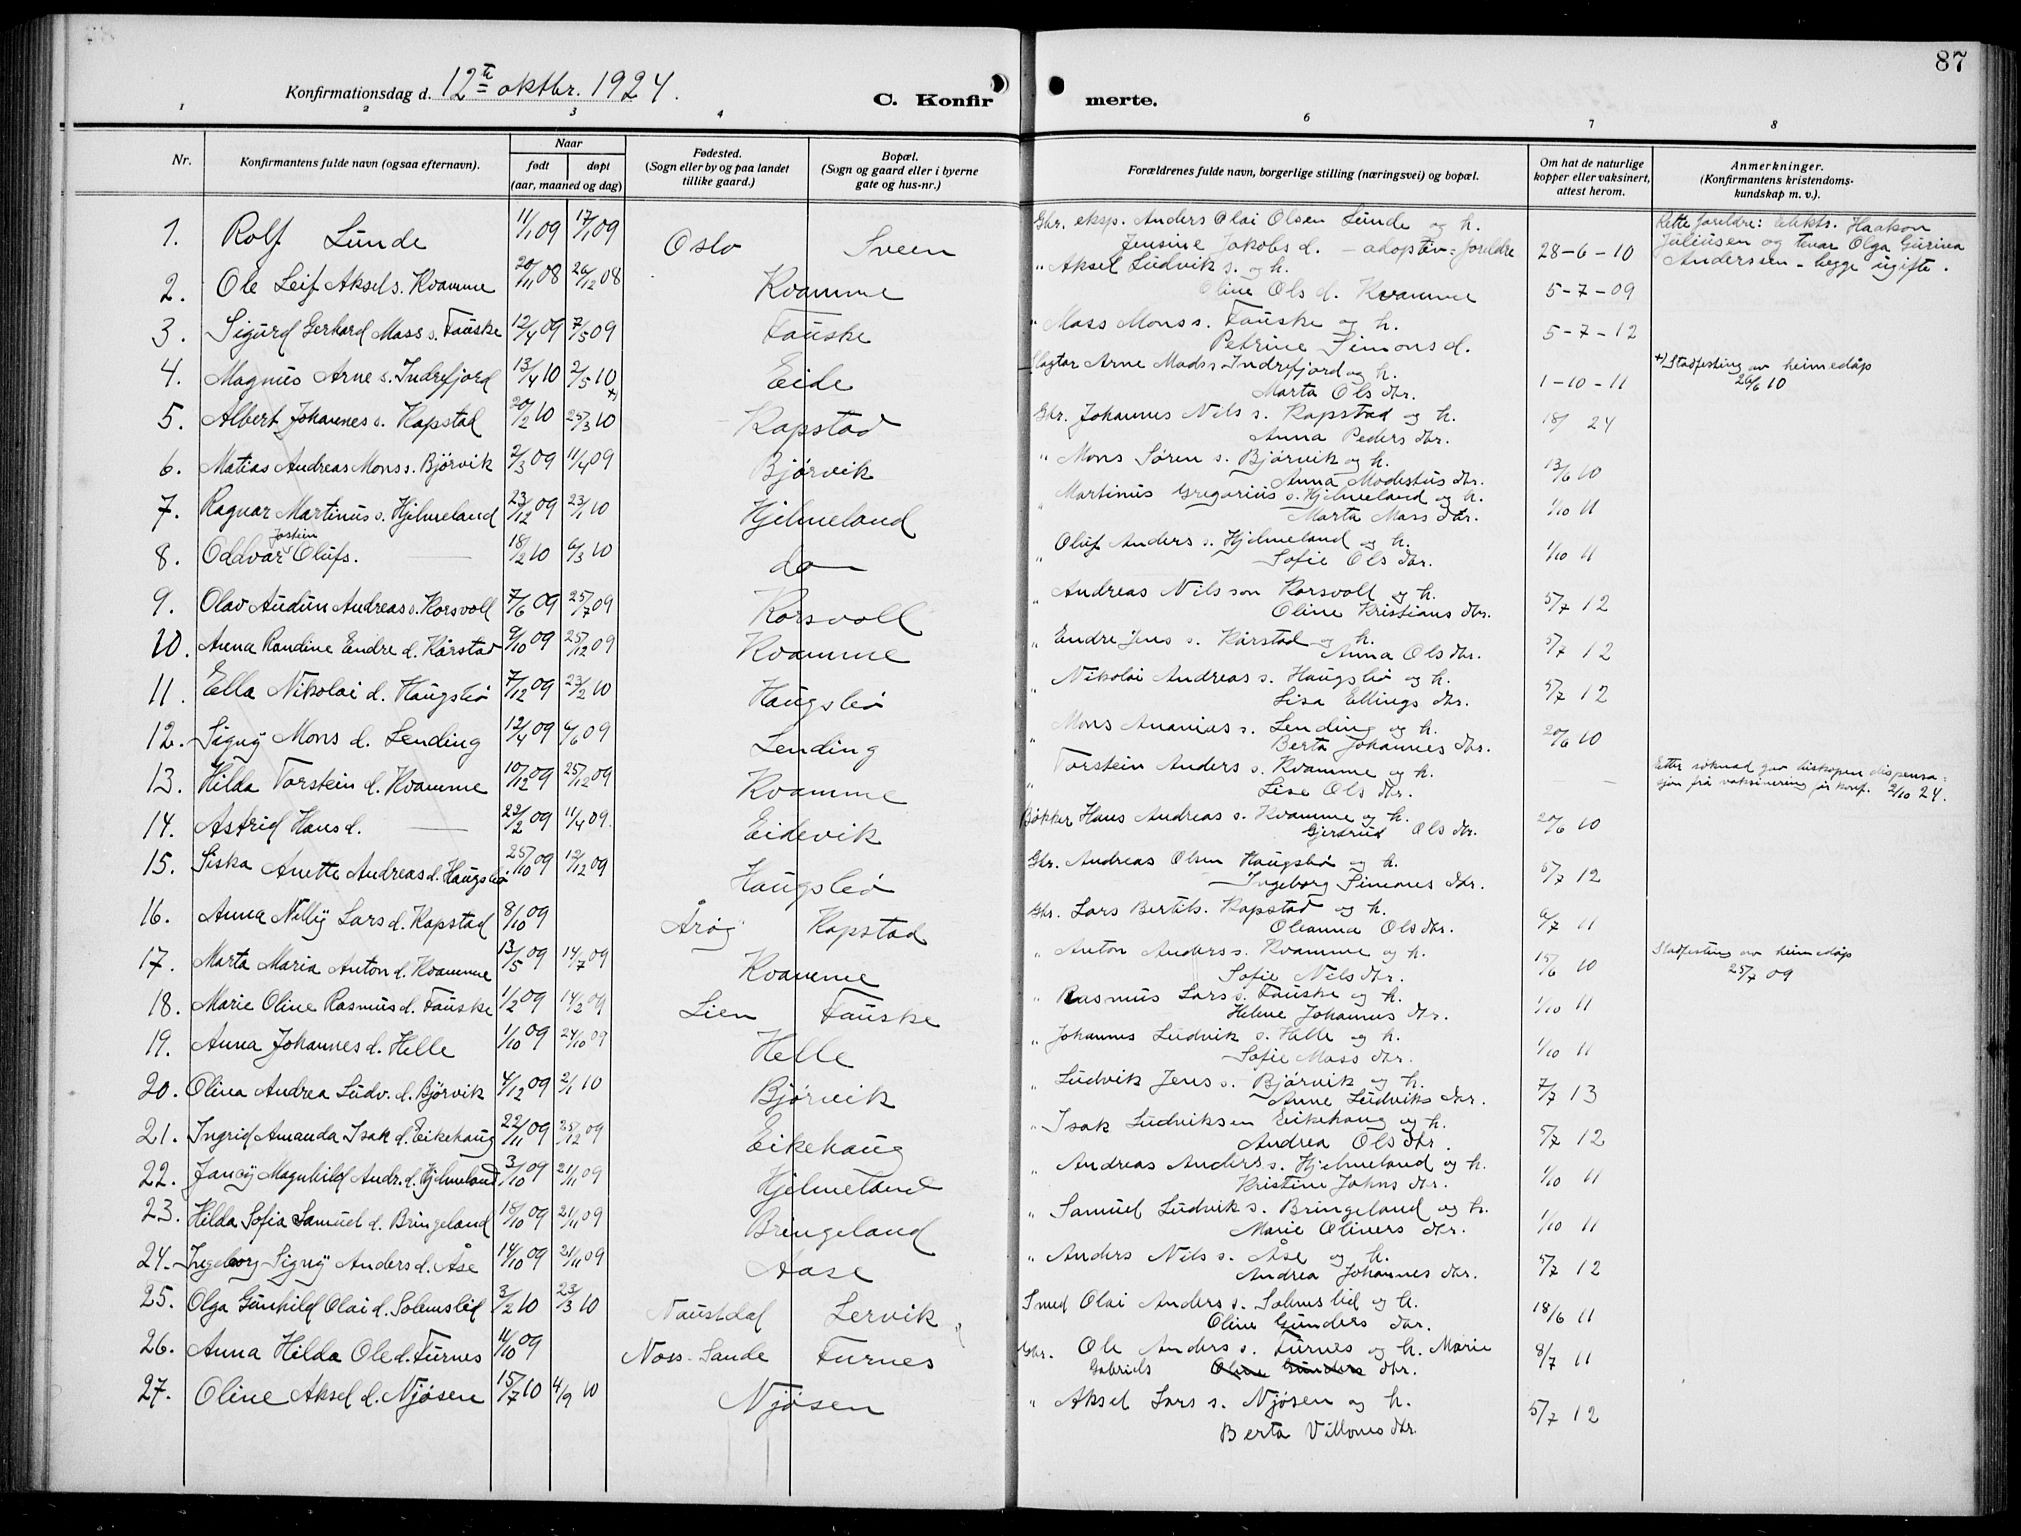 87
Konfirmationsdag d. 12te oktbr. 1924.
C. Konfirmerte.
1 2 3 4 6 7 8
Nr.
Konfirmantens fulde navn (ogsaa efternavn).
Naar
født døpt
(aar, maaned og dag)
Fødested.
(Sogn eller by og paa landet
tillike gaard.)
Bopæl.
(Sogn og gaard eller i byerne
gate og hus-nr.)
Forældrenes fulde navn, borgerlige stilling (næringsvei) og bopæl.
Om hat de naturlige
kopper eller vaksinert,
attest herom.
Anmerkninger.
(Konfirmantens kristendoms-
kundskap m. v.).
1. Rolf Lunde 11/1 09 17/1 09 Oslo Sveen Gbr. eksp. Anders Olai Olsen Lunde og h.
Jensine Jakobs d. - adoptiv-foreldre 28-6-10
Rette foreldre: Elekts. Haakon
Juliusen og tenar Olga Gurina
Anderssen - begge ugifte.
2. Ole Leif Aksel s. Kvamme 20/11 08 26/12 08 Kvamme " Aksel Ludvik s. og h.
Oline Ols d. Kvamme 5-7-09
3. Sigurd Gerhard Mass s. Fauske 12/4 09 7/5 09 Fauske " Mass Mons s. Fauske og h.
Petrine Simons d. 5-7-12
4. Magnus Arne s. Indrefjord 13/4 10 2/5 10 +) Eide Slagtar Arne Mads s. Indrefjord og h.
Marta Ols dtr. 1-10-11
+) Stadfesting av heimedåp
26/6 10
5. Albert Johannes s. Kapstad 20/2 10 25/3 10 Kapstad Gbr. Johannes Nils s. Kapstad og h.
Anna Peders dtr. 18/ 24
6. Matias Andreas Mons s. Bjørvik 2/3 09 11/4 09 Bjørvik " Mons Søren s. Bjørvik og h.
Anna Modestus dtr. 13/6 10
7. Ragnar Martinus s. Hjelmeland 23/12 09 23/1 10 Hjelmeland " Martinus Gregorius s. Hjelmeland og h.
Marta Mass dtr. 1/10 11
8. Oddvar Jostein Olufs. — 18/2 10 6/3 10 do " Oluf Anders s. Hjelmeland og h.
Sofie Ols dtr. 1/10 11
9. Olav Audun Andreas s. Korsvoll 7/6 09 25/7 09 Korsvoll " Andreas Nilsson Korsvoll og h.
Oline Kristians dtr. 5/7 12
10. Anna Randine Endre d. Kårstad 9/10 09 25/12 09 Kvamme " Endre Jens s. Kårstad og h.
Anna Ols dtr. 5/7 12
11. Ella Nikolai d. Haugsbø 7/12 09 23/2 10 Haugsbø " Nikolai Andreas s. Haugsbø og h.
Lisa Ellings dtr. 5/7 12
12. Signy Mons d. Lending 12/4 09 6/6 09 Lending " Mons Ananias s. Lending og h.
Berta Johannes dtr. 20/6 10
13. Hilda Torstein d. Kvamme 10/12 09 25/12 09 Kvamme " Torstein Anders s. Kvamme og h.
Lise Ols dtr. —
Etter søknad gav biskopen dispensa-
sjon frå vaksinering før konf. 2/10 24.
14. Astrid Hans d. — 22/2 09 11/4 09. Eidevik Bøkker Hans Andreas s. Kvamme og h.
Gjertrud Ols dtr. 20/6 10
15. Siska Anette Andreas d. Haugsbø 25/10 09 12/12 09 Haugsbø Gbr. Andreas Olsen Haugsbø og h.
Ingeborg Simons dtr. 5/7 12
16. Anna Nelly Lars d. Kapstad 8/10 09 Årøy Kapstad Gbr. Lars Bertils. Kapstad og h.
Oleanna Ols dtr. 6/7 11
17. Marta Maria Anton d. Kvamme 13/5 09 14/7 09 Kvamme " Anton Anders s. Kvamme og h.
Sofie Nils dtr. 15/6 10
Stadfesting av heimedåp
25/7 09
18. Marie Oline Rasmus d. Fauske 1/2 09 14/2 09 Lien Fauske " Rasmus Lars s. Fauske og h.
Helene Johannes dtr. 1/10 11
19. Anna Johannes d. Helle 1/10 09 24/10 09 Helle " Johannes Ludvik s. Helle og h.
Sofie Mass dtr. 1/10 11
20. Olina Andrea Ludv. d. Bjørvik 4/12 09 2/1 10 Bjørvik " Ludvik Jens s. Bjørvik og h.
Anne Ludviks dtr. 7/7 13
21. Ingrid Amanda Isak d. Eikehaug 22/11 09 25/12 09 Eikehaug " Isak Ludviksen Eikehaug og h.
Andrea Ols dtr. 5/7 12
22. Jancy Magnhild Andr. d. Hjelmeland 3/10 09 21/11 09 Hjelmeland " Andreas Anders s. Hjelmeland og h.
Kristine Johns dtr. 1/10 11
23. Hilda Sofia Samuel d. Bringeland 18/10 09 21/11 09 Bringeland " Samuel Ludvik s. Bringeland og h.
Marie Olivers dtr. 1/10 11
24. Ingeborg Signy Anders d. Åse 14/10 09 21/11 09 Aase " Anders Nils s. Åse og h.
Andrea Johannes dtr. 5/7 12
25. Olga Gunhild Olai d. Solemslid 3/2 10 23/3 10 Naustdal Lervik Smed Olai Anders s. Solemslid og h.
Oline Gunders dtr. 18/6 11
26. Anna Hilda Ole d. Furnes 11/10 09 Noss-Sande Furnes Gbr. Ole Anders s. Furnes og h. Marie
Gabriels Oline Gunders dtr. 8/7 11
27. Oline Aksel d. Njøsen 15/7 10 4/9 10 Njøsen " Aksel Lars s. Njøsen og h.
Berta Villums dtr. 5/7 12